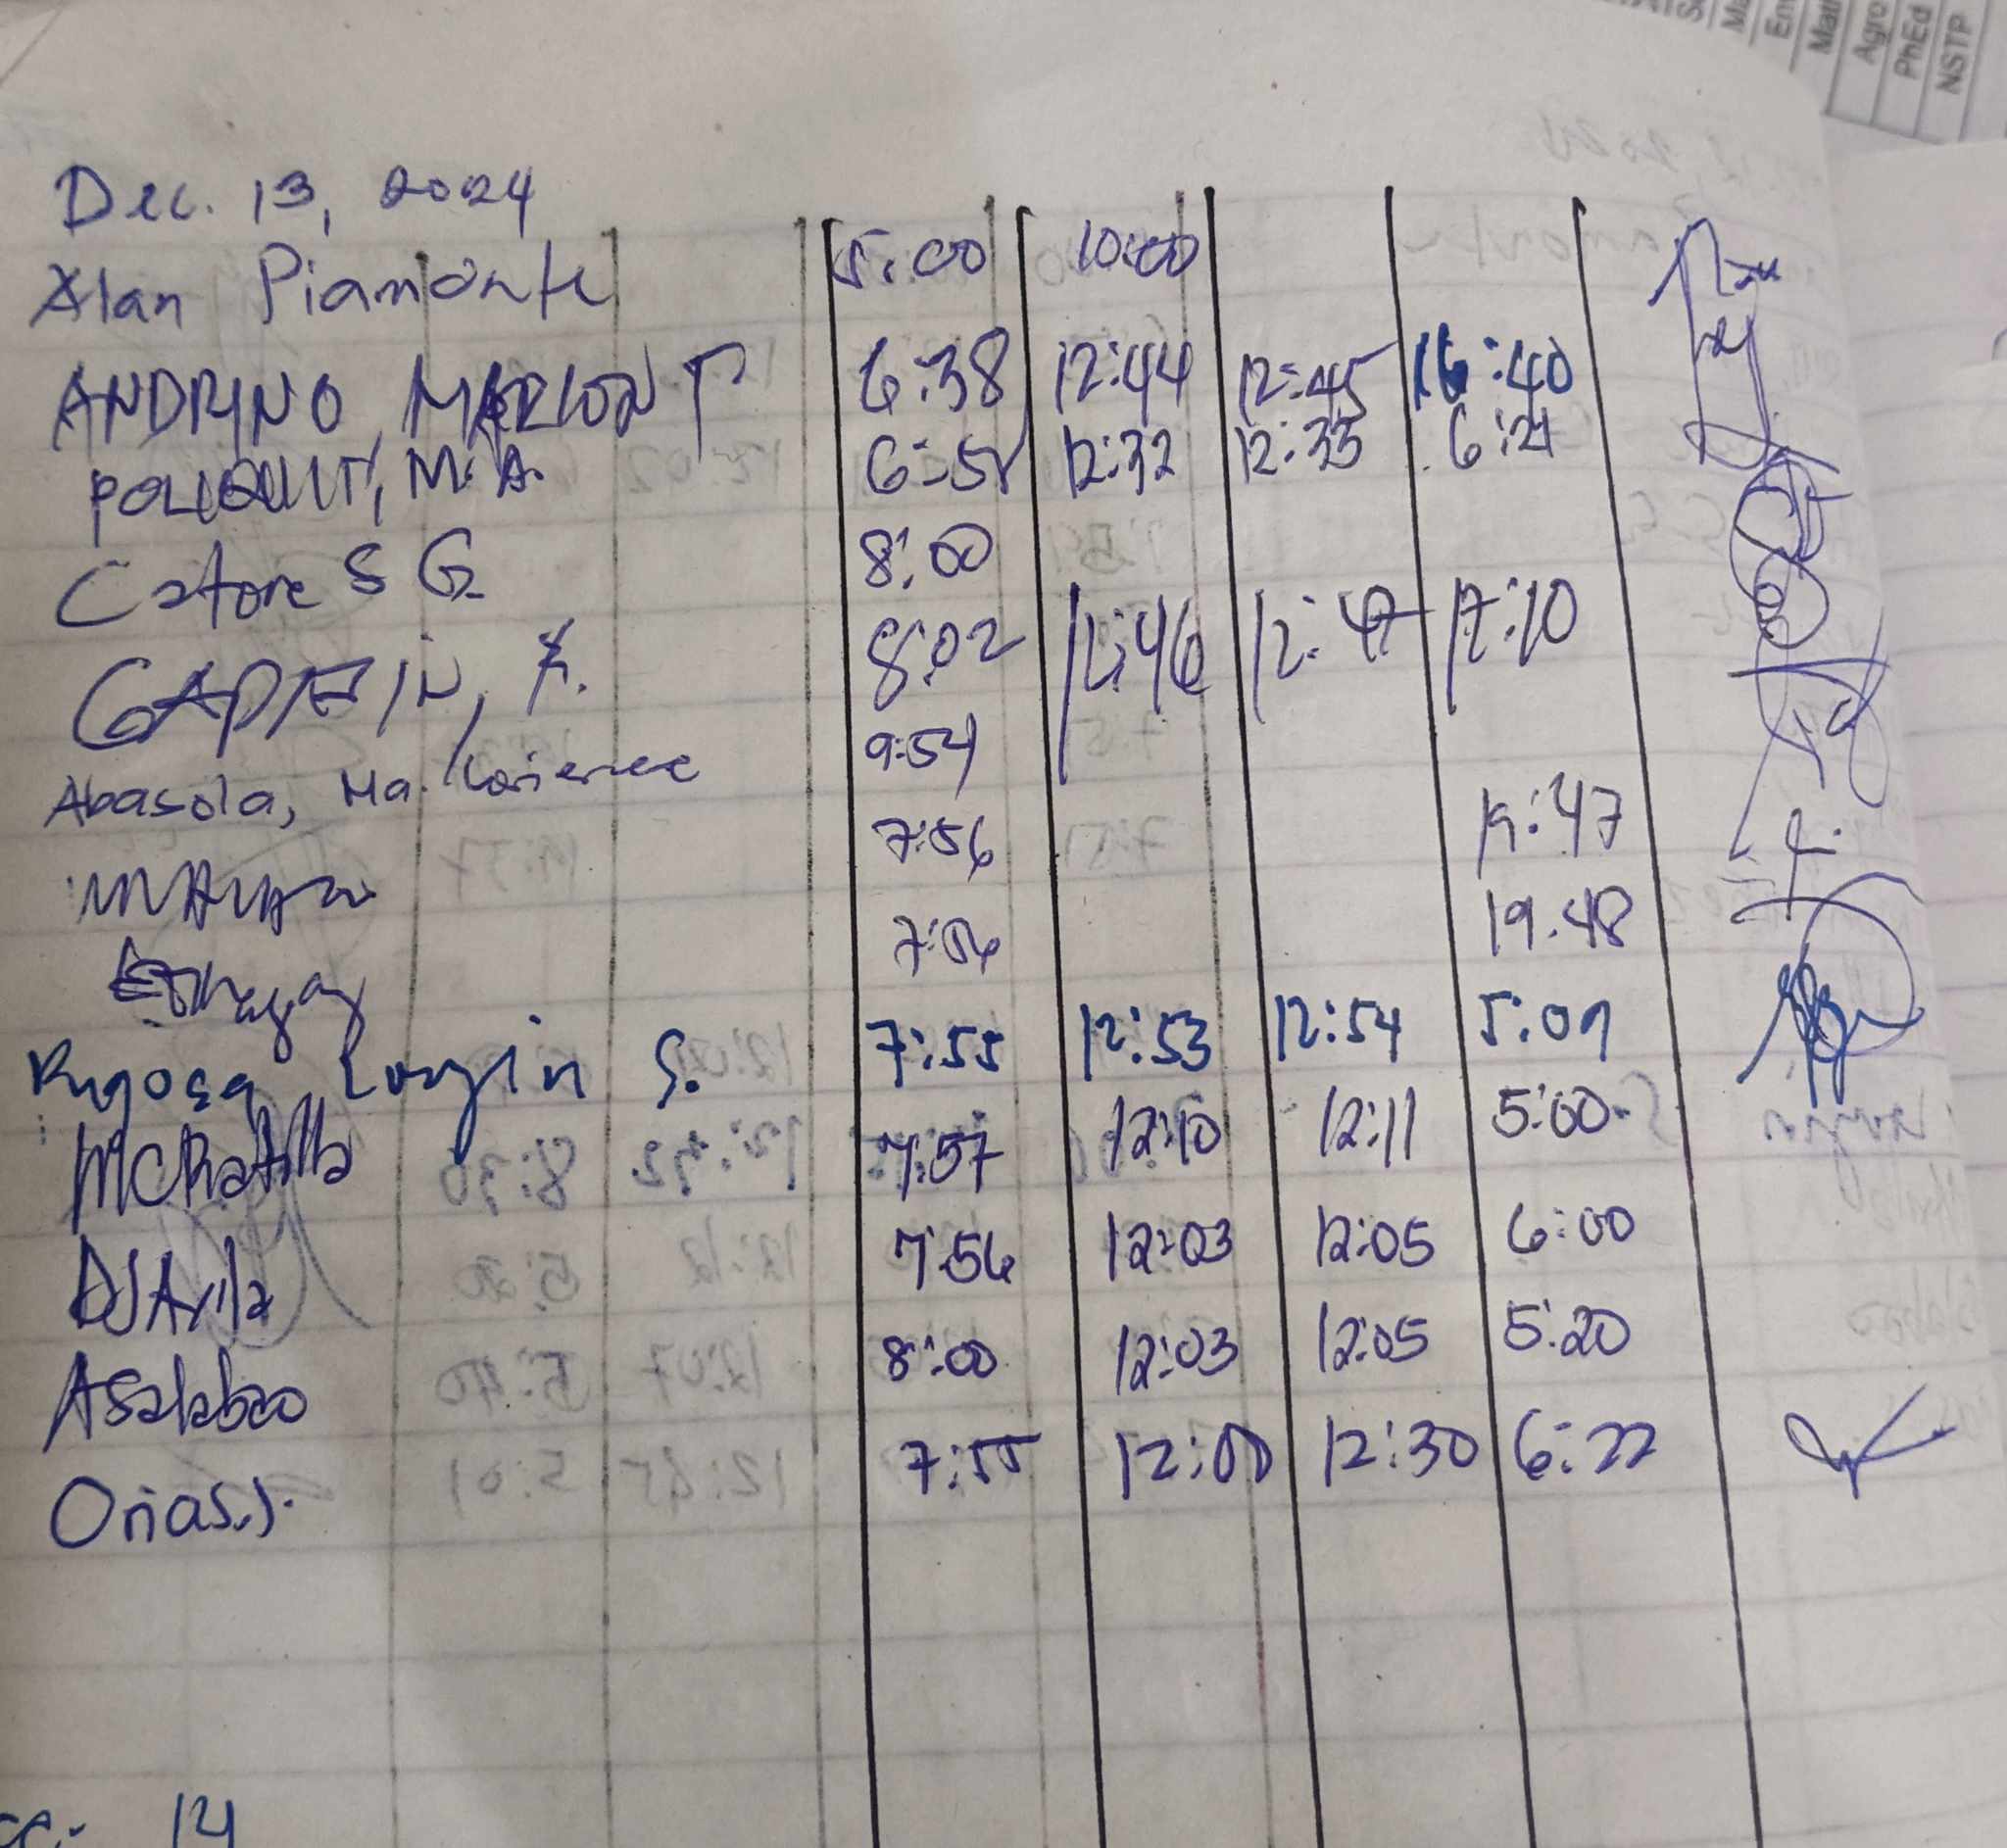 Dec. 13, 2024
Alan Piamonte 5:00 10:00
ANDRINO, MARLON T 6:38 12:44 12:45 16:40
POLIQUIT, M.A. 6:51 12:32 12:33 6:21
Catore S G 8:00
GAPASIN, F. 8:02 12:46 12:47 17:10
Abasola, Ma. Lorience 9:54
7:56 19:47
7:56 19.48
Rugosa, Lougin S. 7:55 12:53 12:54 5:01
MCRatilla 7:57 12:10 12:11 5:00
DJAvila 7:56 12:03 12:05 6:00
ASalabao 8:00 12:03 12:05 5:20
Orias.J. 7:55 12:00 12:30 6:22
14
Agro
PhEd
NSTP